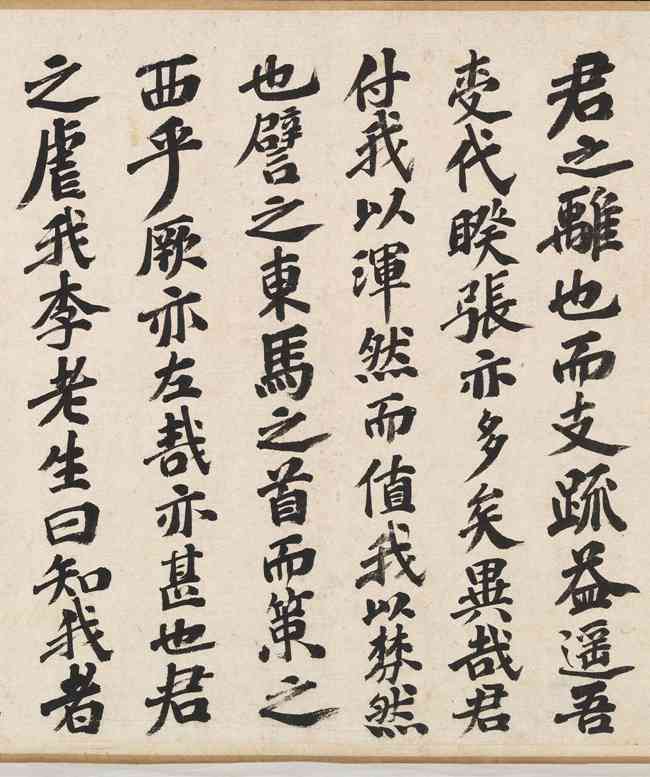 君之離也而支疏益遥吾
変代睽張亦多矣異哉君
付我以渾然而值我以棼然
也譬之東馬之首而策之
西乎厥亦左哉亦甚也君
之虐我李老生曰知我者